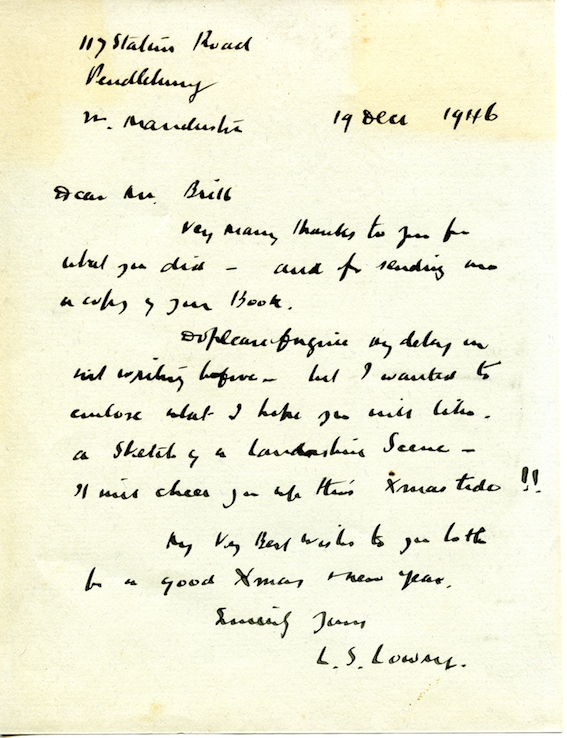 117 Station Road
Pendlebury
Nr. Manchester
19 Dec 1946
Dear Mr. Brill
Very many thanks to you for
what you did – and for sending me
a copy of your Book.
Do please forgive my delay in
not writing before – but I wanted to
enclose what I hope you will like.
a Sketch of a Lancashire Scene –
It will cheer you up this Xmas tide !!
My Very Best Wishes to you both
for a good Xmas & new year.
Sincerely Yours
L. S. Lowry.